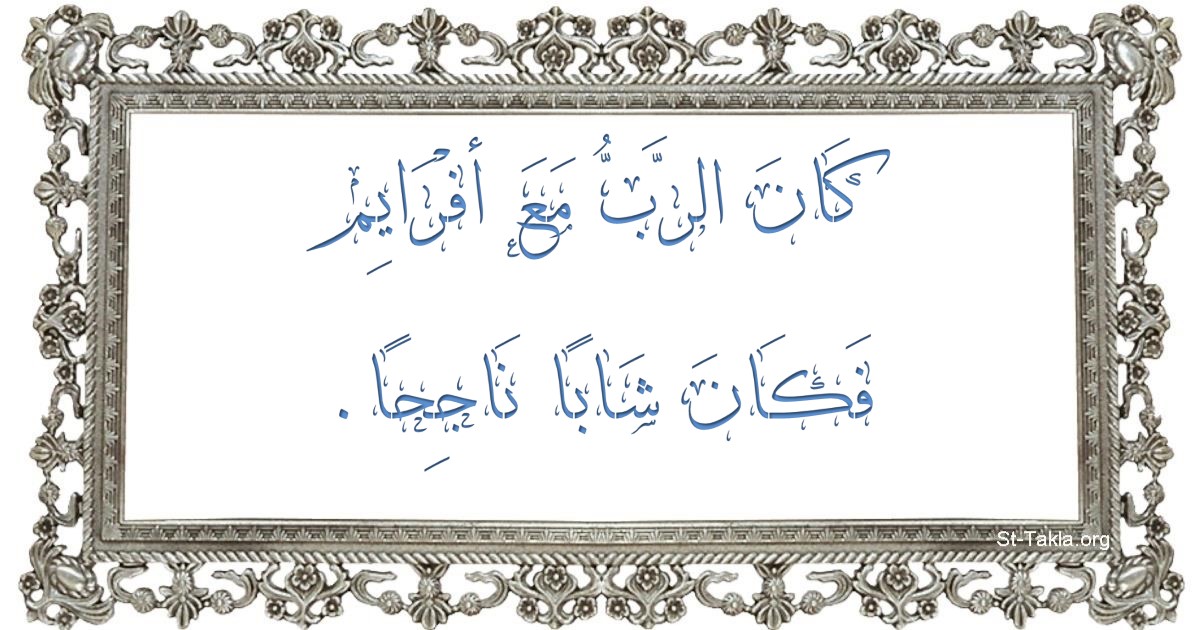 كَانَ الرَّبُّ مَعَ أفْرَايِمْ
فَكَانَ شَابًا نَاجِحًا .
St-Takla.org